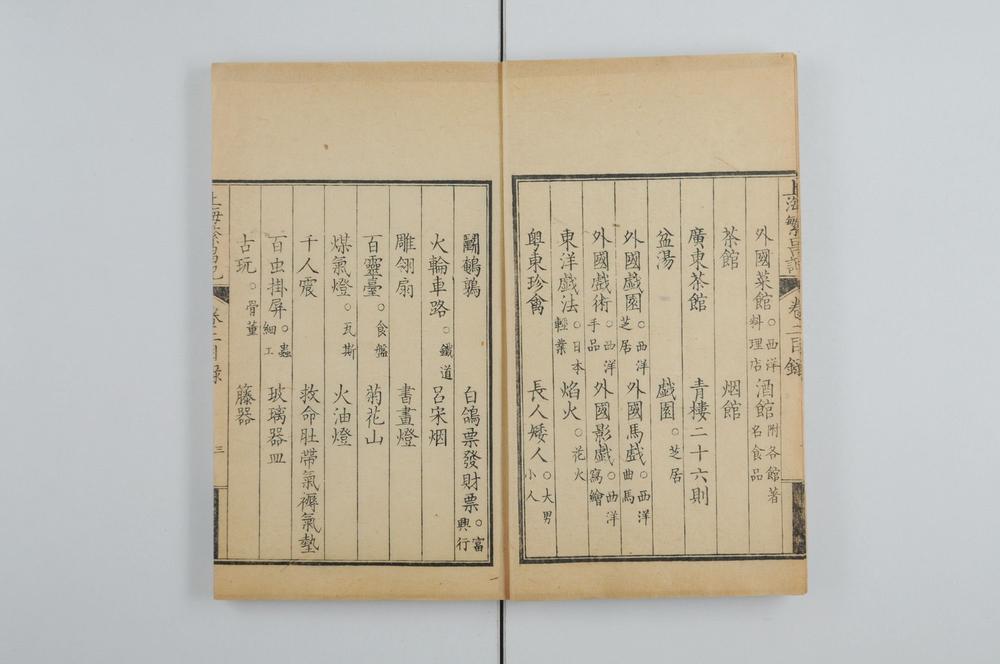 上海繁昌記 卷二目錄
外國菜館○西洋料理店 酒館附各館著名食品
茶館 烟館
廣東茶館 青樓二十六則
盆湯 戯園○芝居
外國戯園○西洋芝居 外國馬戯○西洋曲馬
外國戯術○西洋手品 外國影戯○西洋寫繪
東洋戯法○日本輕業 焰火○花火
粵東珍禽 長人矮人○大男小人
鬭鵪鶉 白鴿票發財票○富興行
火輪車路○鐵道 呂宋烟
雕翎扇 書畫燈
百靈臺○食盤 菊花山
煤氣燈○瓦斯 火油燈
千人震 救命肚帶氣褥氣墊
百虫掛屏○蟲細工 玻璃器皿
古玩○骨董 籐器
上海繁昌記 卷二目錄 三